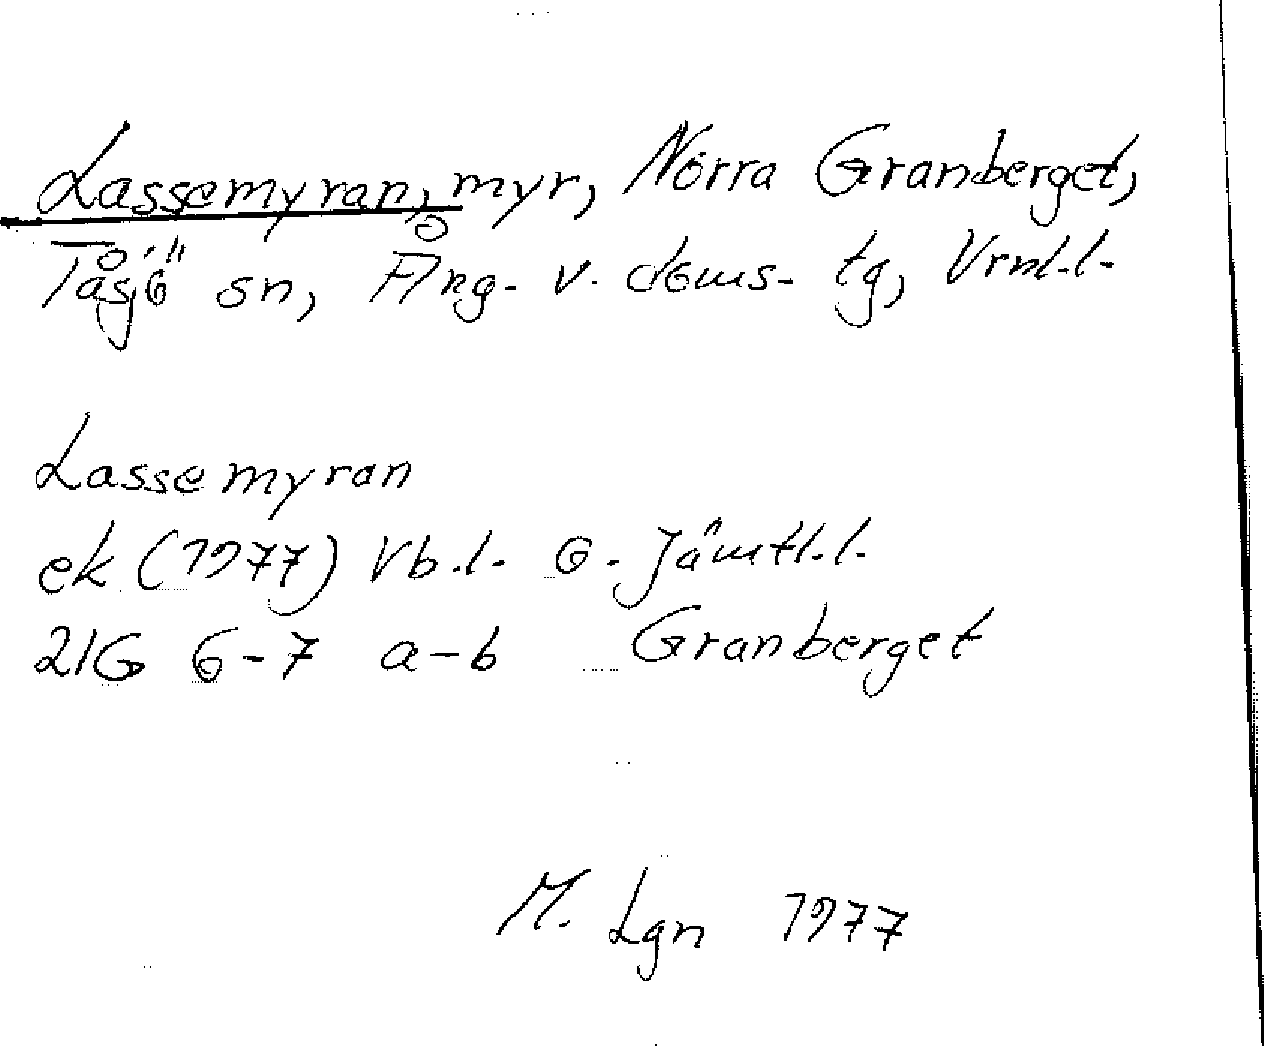 Lassemyran, myr, Norra Granberget,
Tåsjö sn, Ång. v. doms. tg, Vrml.l.
Lassemyran
ek (1977) Vb.l. o. Jämtl.l.
21G 6-7 a-b Granberget
M. Lgn 1977